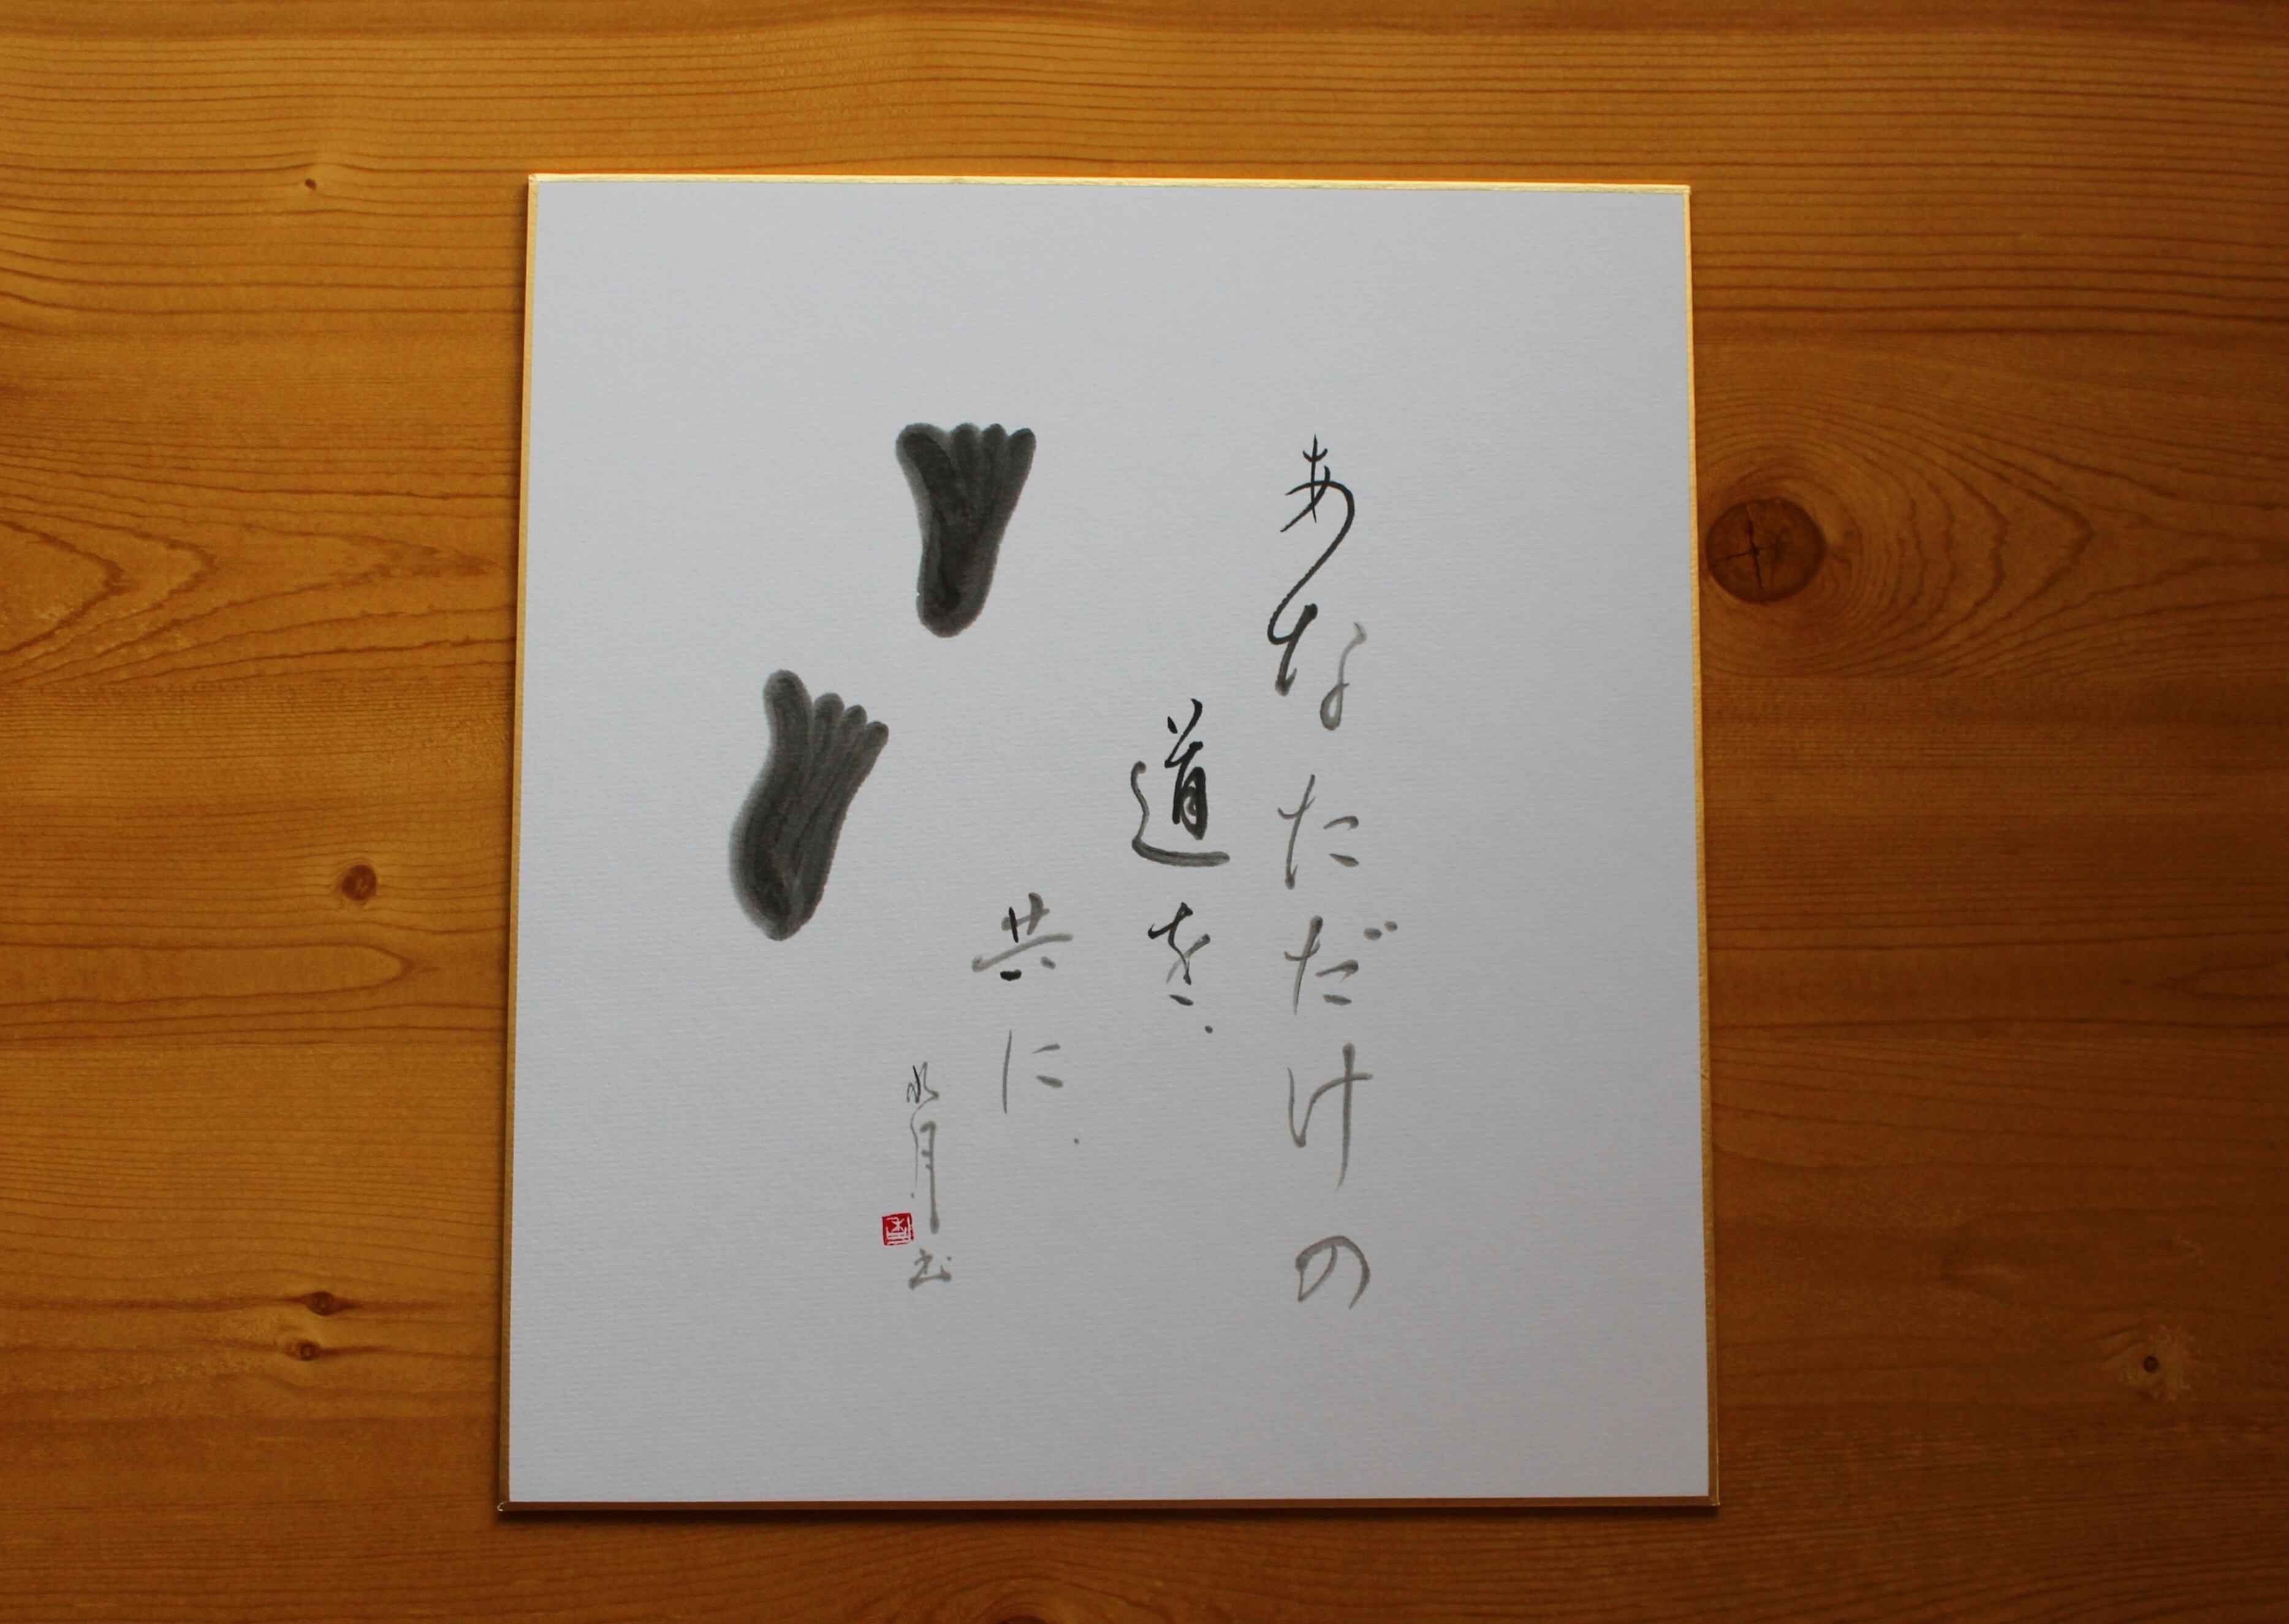 あなただけの
道を.
共に.
水月書